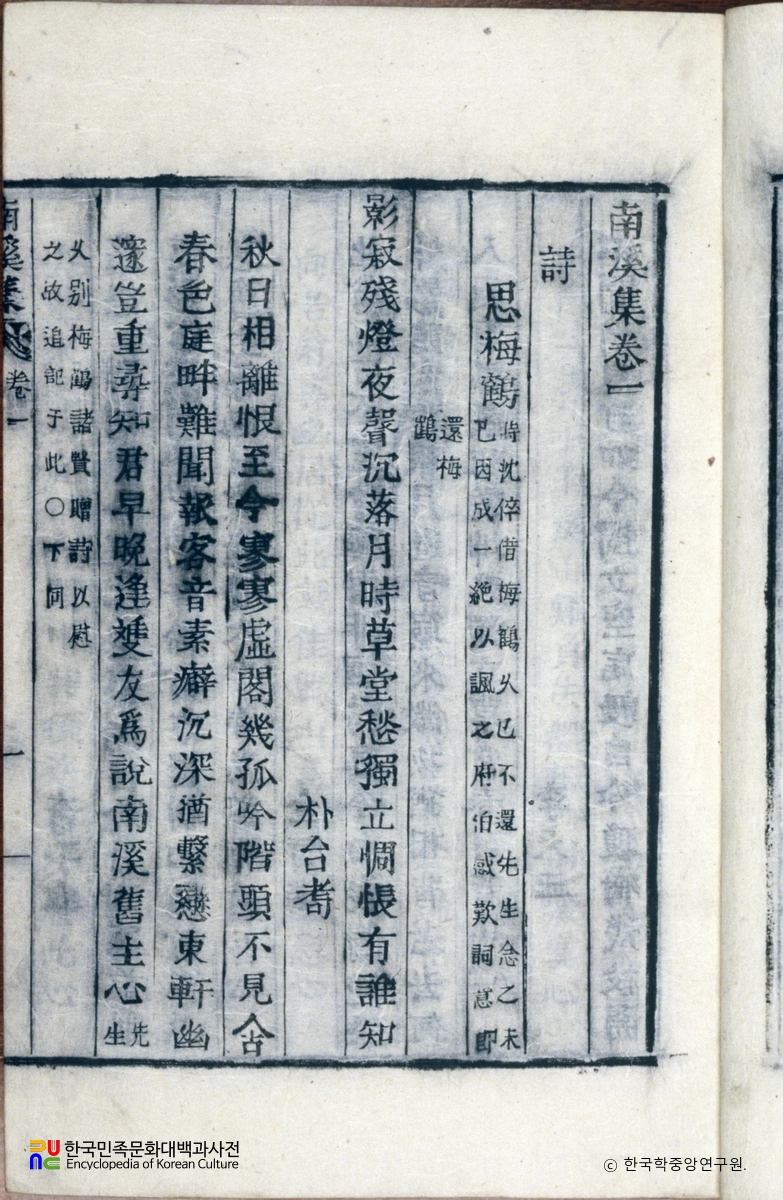 南溪集卷一
詩
思梅鶴 時沈倅借梅鶴久已不還先生念之未
已因成一絶以諷之府伯感歎詞意即
還梅
鶴
影寂殘燈夜聲沉落月時草堂愁獨立惆悵有誰知
朴台耉
秋日相離恨至今寥寥虛閣幾孤吟階頭不見
春色庭畔難聞報客音素癖沉深猶繫戀東軒幽
邃豈重尋知君早晩逢雙友爲說南溪舊主心 先
生
久別梅鶴諸賢贈詩以慰
之故追記于此○下同
南溪集 卷一
한국민족문화대백과사전
Encyclopedia of Korean Culture
ⓒ 한국학중앙연구원.